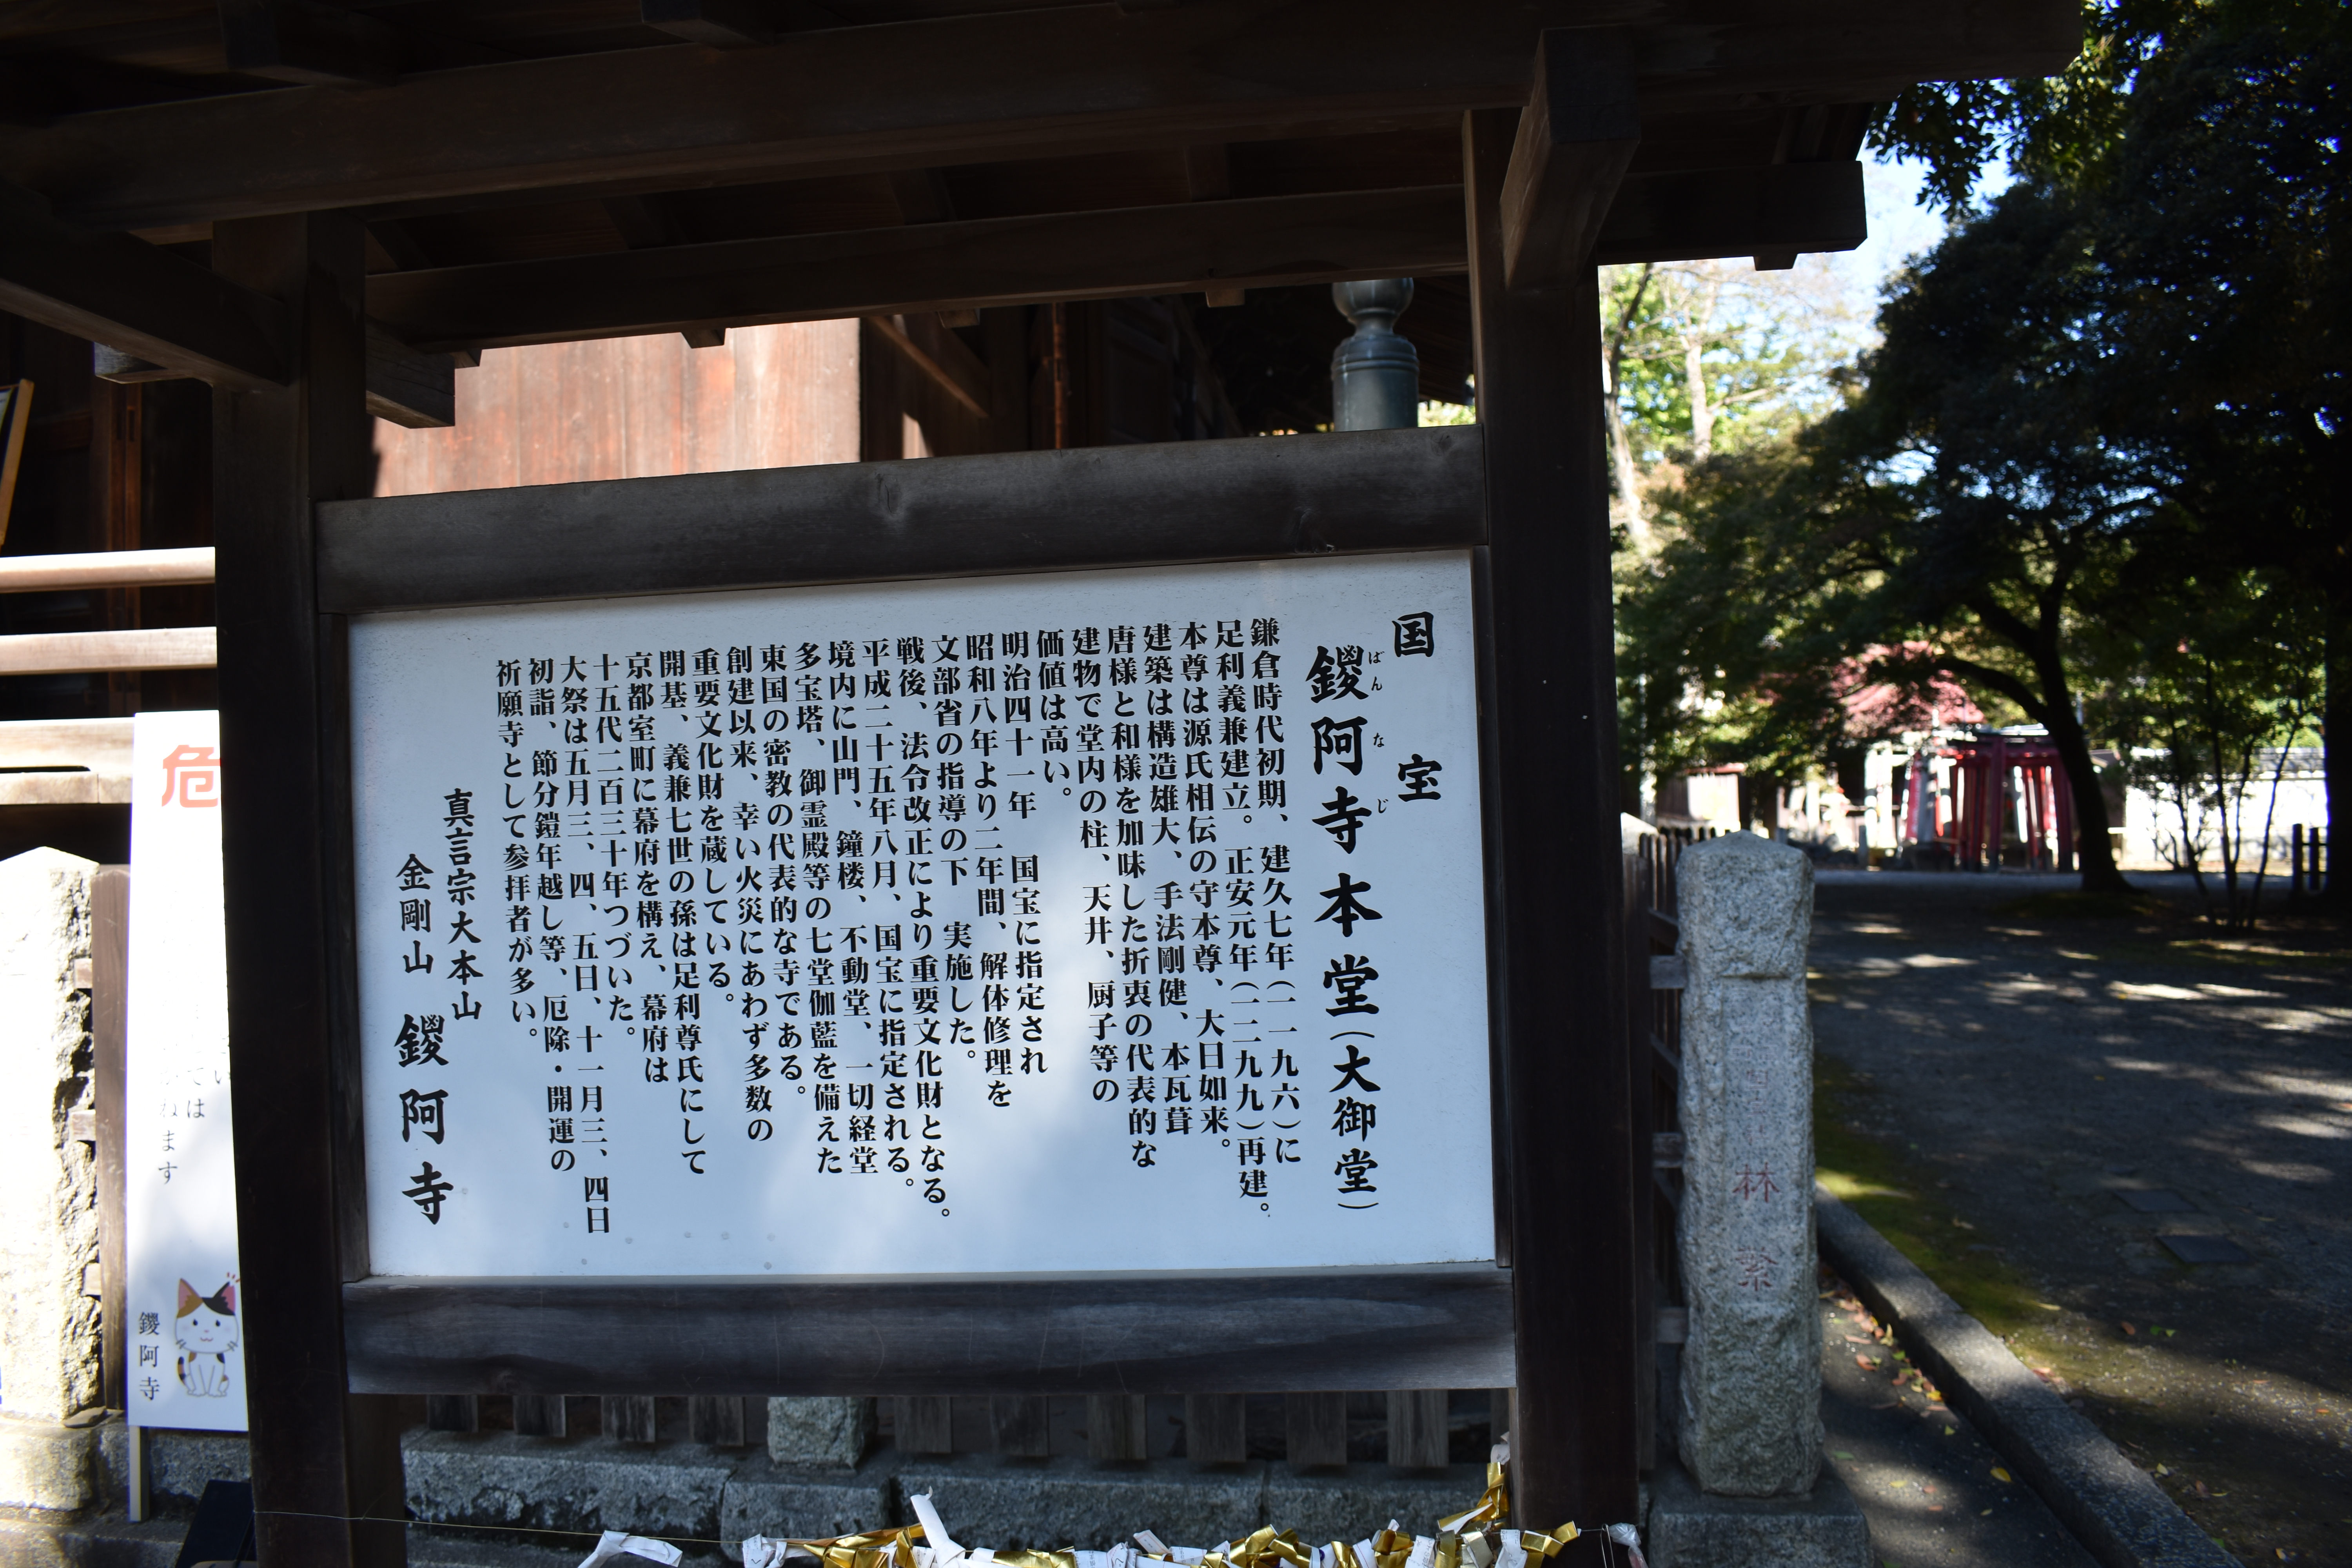 国宝
鑁阿寺本堂(大御堂)
ばんなじ
鎌倉時代初期、建久七年(一一九六)に
足利義兼建立。正安元年(一二九九)再建。
本尊は源氏相伝の守本尊、大日如来。
建築は構造雄大、手法剛健、本瓦葺
唐様と和様を加味した折衷の代表的な
建物で堂内の柱、天井、厨子等の
価値は高い。
明治四十一年 国宝に指定され
昭和八年より二年間、解体修理を
文部省の指導の下 実施した。
戦後、法令改正により重要文化財となる。
平成二十五年八月、国宝に指定される。
境内に山門、鐘楼、不動堂、一切経堂
多宝塔、御霊殿等の七堂伽藍を備えた
東国の密教の代表的な寺である。
創建以来、幸い火災にあわず多数の
重要文化財を蔵している。
開基、義兼七世の孫は足利尊氏にして
京都室町に幕府を構え、幕府は
十五代二百三十年つづいた。
大祭は五月三、四、五日、十一月三、四日
初詣、節分鎧年越し等、厄除・開運の
祈願寺として参拝者が多い。
真言宗大本山
金剛山 鑁阿寺
危
ては
ねます
鑁阿寺
林